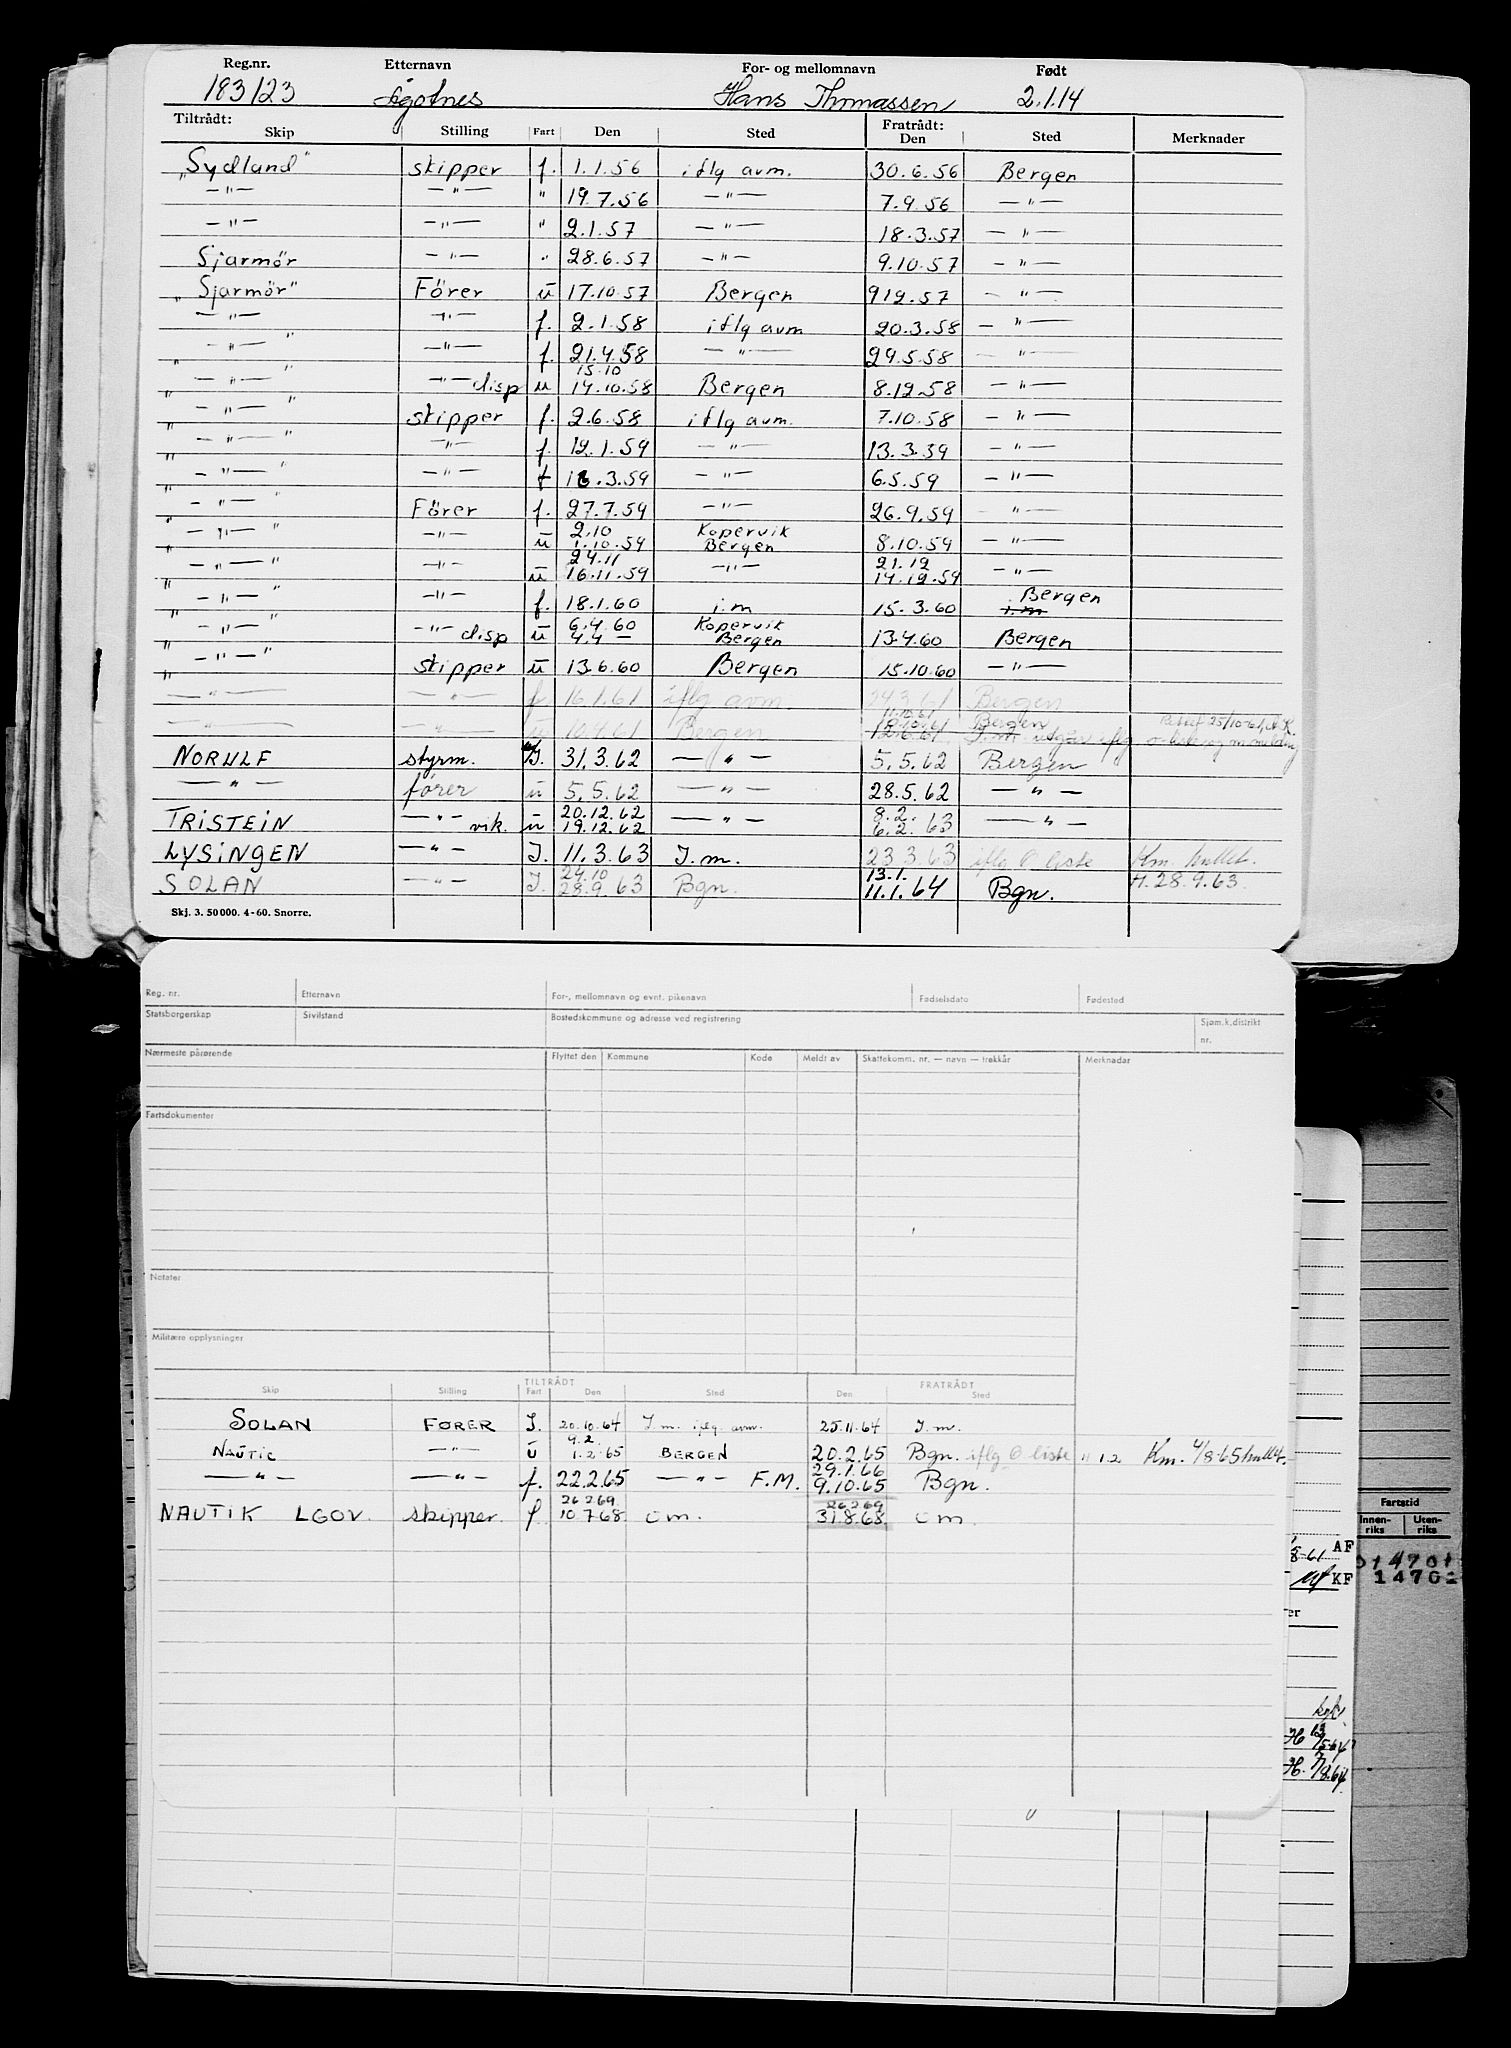 Reg.nr. Etternavn For- og mellomnavn Født
183123 Ågotnes Hans Thomassen 2.1.14
Tiltrådt: Fratrådt:
Skip Stilling Fart Den Sted Den Sted Merknader
„Sydland" skipper f. 1.1.56 iflg avm. 30.6.56 Bergen
—"— —"— " 19.7.56 —"— 7.9.56 —"—
—"— —"— " 2.1.57 —"— 18.3.57 —"—
Sjarmör —"— " 28.6.57 —"— 9.10.57 —"—
„Sjarmör" Förer u 17.10.57 Bergen 912.57 —"—
—"— —"— f. 2.1.58 iflg avm 20.3.58 —"—
„—"—" —"— f. 21.4.58 —"— 29.5.58 —"—
15.10
„—"—" —"— disp u 14.10.58 Bergen 8.12.58 —"—
„—"—" skipper f. 2.6.58 iflg avm. 7.10.58 —"—
„—"—" —"— f. 12.1.59 —"— 13.3.59 —"—
„—"—" —"— f 16.3.59 —"— 6.5.59 —"—
„—"—" Förer f. 27.7.59 —"— 26.9.59 —"—
2.10 Kopervik
„—"—" —"— u 1.10.59 Bergen 8.10.59 —"—
24.11 21.12
„—"—" —"— u 16.11.59 —"— 14.12.59 —"—
Bergen
„—"—" —"— f. 18.1.60 i.m 15.3.60 i.m
6.4.60 Kopervik
„—"—" —"— disp u 4.4 — Bergen 13.4.60 Bergen
„—"—" skipper u 13.6.60 Bergen 15.10.60 —"—
—"— —"— f 16.1.61 iflg avm. 24.3.61 Bergen
11.10.61
10.10.61 Bergen 25/10-61
—"— —"— u 10.4.61 Bergen 12.6.61 I.m. utgår iflg
NORULF styrm. I. 31.3.62 —"— 5.5.62 Bergen
—"— fører u 5.5.62 —"— 28.5.62 —"—
20.12.62 8.2.
TRISTEIN —"— vik. u 19.12.62 —"— 6.2.63 —"—
LYSINGEN —"— I. 11.3.63 I.m. 23.3.63 iflg O liste Km. hullet.
24.10 13.1.
SOLAN —"— I. 28.9.63 Bgn. 11.1.64 Bgn. H. 28.9.63.
Skj. 3. 50000. 4-60. Snorre.
Reg. nr. Etternavn For-, mellomnavn og evnt. pikenavn Fødselsdato Fødested
Statsborgerskap Sivilstand Bostedskommune og adresse ved registrering Sjøm.k.distrikt nr.
Nærmeste pårørende Flyttet den Kommune Kode Meldt av Skattekomm. nr. — navn — trekkår Merknader
Fartsdokumenter
Notater
Militære opplysninger
TILTRÅDT FRATRÅDT
Skip Stilling Fart Den Sted Den Sted
SOLAN FØRER I. 20.10.64 I.m. iflg. avm. 25.11.64 I.m.
9.2.
NAUTIC —"— u 1.2.65 BERGEN 20.2.65 Bgn. iflg O liste " 1.2 Km. 4/8.65 hullet.
29.1.66
—"— —"— f. 22.2.65 —"— F.M. 9.10.65 Bgn.
26 2 69 26 2 69
NAUTIK LGOV. skipper. f. 10.7.68 im. 31.8.68 im.
Fartstid
Innen-riks Uten-riks
8-61 AF
KF
1470
er
H 12/5-64
H. 7/8.64